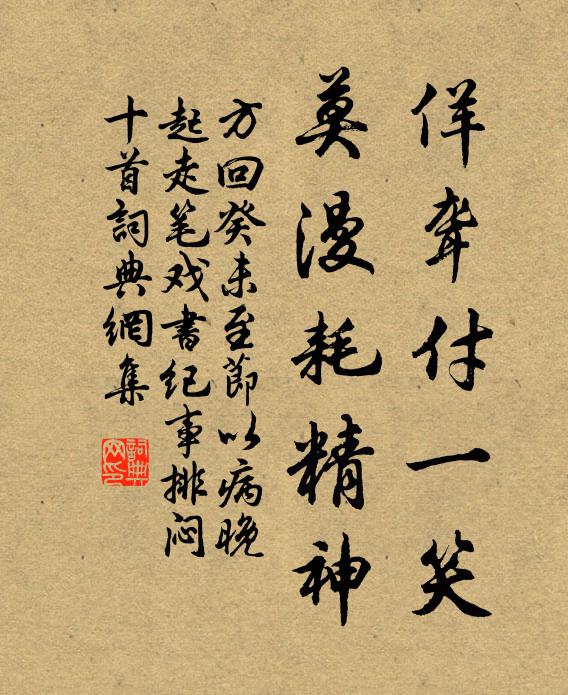 佯聋付一笑
莫漫耗精神
方回癸未至節以病晚
起走笔戏書纪事排闷
十首詞典網集
詞典网印